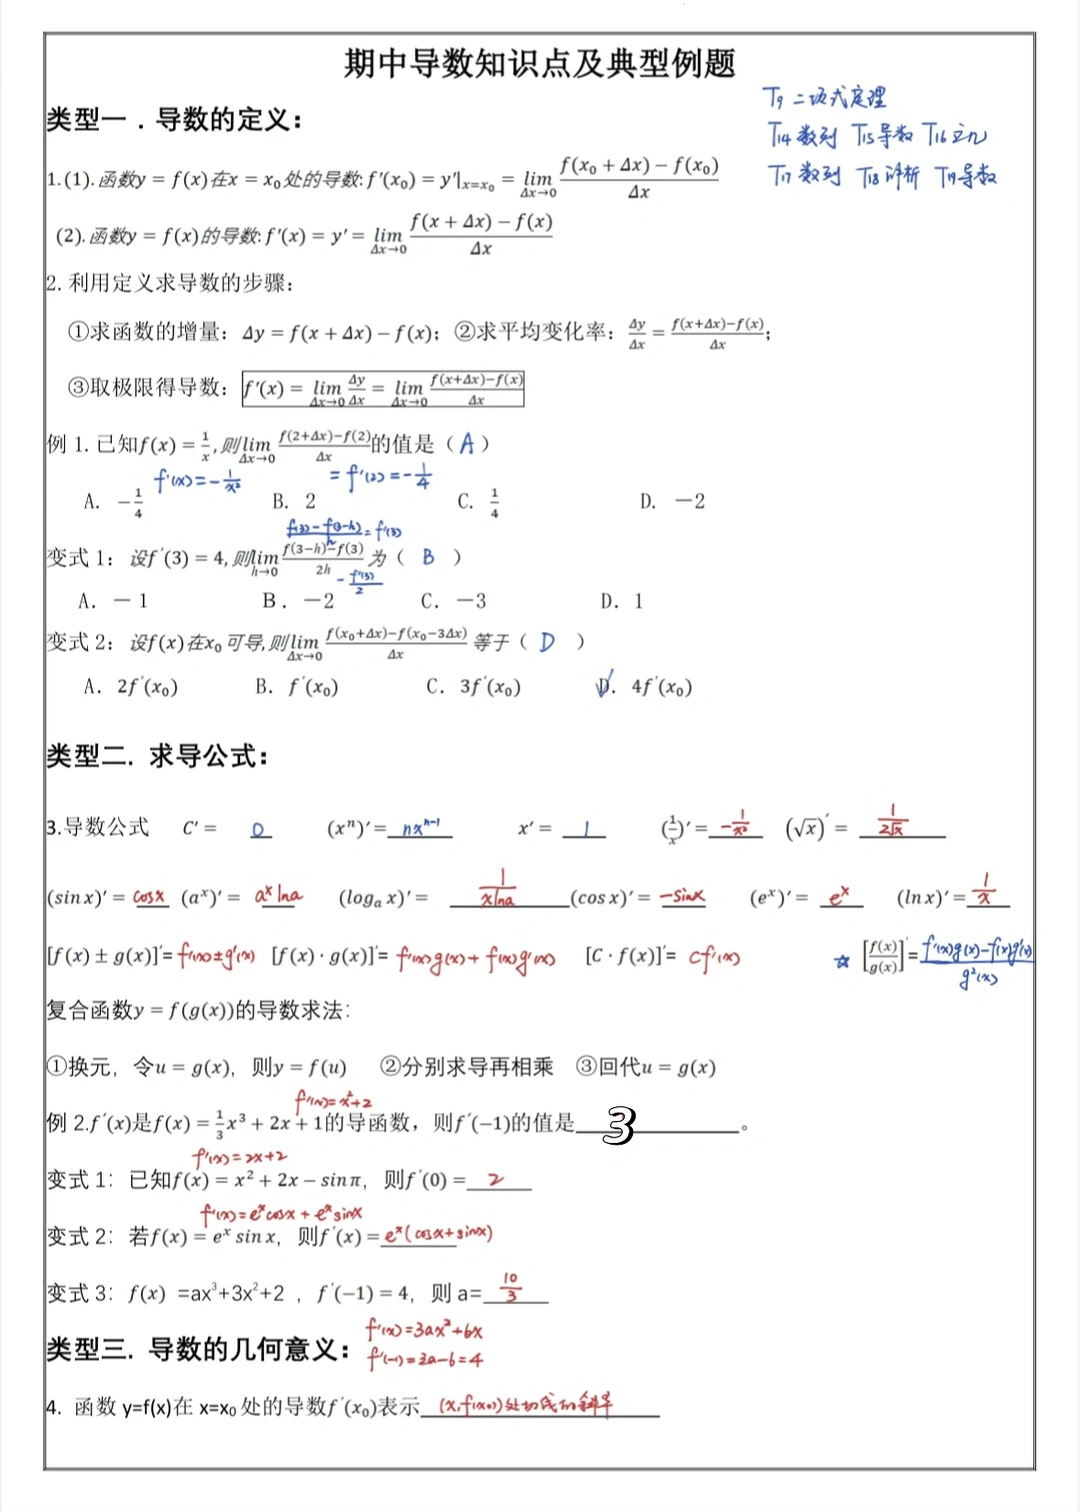 期中导数知识点及典型例题
T9 二项式定理
T14 数列 T15 导数 T16 立几
T17 数列 T18 解析 T19 导数
类型一．导数的定义：
1.(1).函数y = f(x)在x = x₀处的导数:f′(x₀) = y′|ₓ₌ₓ₀ = lim(Δx→0) (f(x₀ + Δx) − f(x₀))/Δx
(2).函数y = f(x)的导数:f′(x) = y′ = lim(Δx→0) (f(x + Δx) − f(x))/Δx
2. 利用定义求导数的步骤：
①求函数的增量：Δy = f(x + Δx) − f(x)；②求平均变化率：Δy/Δx = (f(x+Δx)−f(x))/Δx；
③取极限得导数：f′(x) = lim(Δx→0) Δy/Δx = lim(Δx→0) (f(x+Δx)−f(x))/Δx
例 1. 已知f(x) = 1/x ,则lim(Δx→0) (f(2+Δx)−f(2))/Δx 的值是（ A ）
f′(x)=−1/x² =f′(2)=−1/4
A. −1/4 B. 2 C. 1/4 D. −2
(f(3)−f(3−h))/h = f′(3)
变式 1：设f′(3) = 4,则lim(h→0) (f(3−h)−f(3))/2h 为（ B ）
−f′(3)/2
A. −1 B. −2 C. −3 D. 1
变式 2：设f(x)在x₀可导,则lim(Δx→0) (f(x₀+Δx)−f(x₀−3Δx))/Δx 等于（ D ）
A. 2f′(x₀) B. f′(x₀) C. 3f′(x₀) D. 4f′(x₀)
类型二. 求导公式：
3.导数公式 C′ = 0 (xⁿ)′ = nxⁿ⁻¹ x′ = 1 (1/x)′ = −1/x² (√x)′ = 1/(2√x)
(sin x)′ = cosx (aˣ)′ = aˣ lna (logₐ x)′ = 1/(xlna) (cos x)′ = −sinx (eˣ)′ = eˣ (ln x)′ = 1/x
[f(x) ± g(x)]′= f′(x)±g′(x) [f(x) · g(x)]′= f′(x)g(x)+f(x)g′(x) [C · f(x)]′= cf′(x) ☆ [f(x)/g(x)]′ = (f′(x)g(x)−f(x)g′(x))/g²(x)
复合函数y = f(g(x))的导数求法:
①换元，令u = g(x)，则y = f(u) ②分别求导再相乘 ③回代u = g(x)
f′(x)=x²+2
例 2.f′(x)是f(x) = 1/3 x³ + 2x + 1的导函数，则f′(−1)的值是 3 。
f′(x)=2x+2
变式 1：已知f(x) = x² + 2x − sin π，则f′(0) = 2
f′(x)=eˣcosx+eˣsinx
变式 2：若f(x) = eˣ sin x，则f′(x) = eˣ(cosx+sinx)
变式 3：f(x) =ax³+3x²+2 ，f′(−1) = 4，则 a= 10/3
f′(x)=3ax²+6x
类型三. 导数的几何意义：
f′(−1)=3a−6=4
4. 函数 y=f(x)在 x=x₀处的导数f′(x₀)表示 (x₀,f(x₀))处切线的斜率